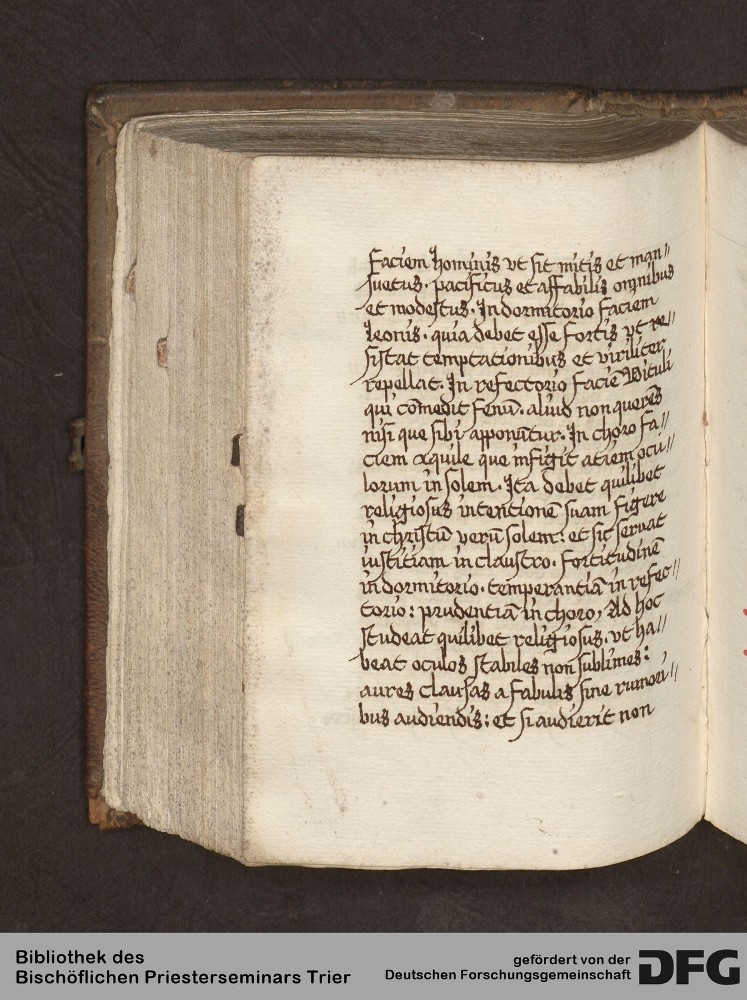 faciem hominis vt sit mitis et man//
suetus. pacificus et affabilis omnibus
et modestus. In dormitorio faciem
leonis. quia debet esse fortis vt re//
sistat temptationibus et viriliter
repellat. In refectorio faciē Vituli
qui cōmedit fenū. aliud non querēs
nisi que sibi apponūtur. In choro fa//
ciem aquile que infigit aciem ocu//
lorum in solem. Ita debet quilibet
religiosus intentionē suam figere
in christū verū solem: et sic seruat
iustitiam in claustro. fortitudinē
in dormitorio. temperantiā in refec//
torio: prudentiā in choro, Ad hoc
studeat quilibet religiosus. vt ha//
beat oculos stabiles non sublimes:
aures clausas a fabulis siue rumori//
bus audiendis: et si audierit non
Bibliothek des
Bischöflichen Priesterseminars Trier
gefördert von der
Deutschen Forschungsgemeinschaft
DFG